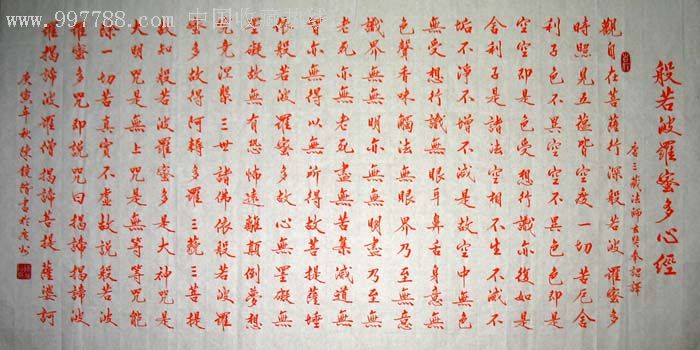 www.997788.com 中国收藏热线
般若波羅蜜多心經
唐三藏法師玄奘奉詔譯
觀自在菩薩行深般若波羅蜜多
時照見五蘊皆空度一切苦厄舍
利子色不異空空不異色色即是
空空即是色受想行識亦復如是
舍利子是諸法空相不生不滅不
垢不淨不增不減是故空中無色
無受想行識無眼耳鼻舌身意無
色聲香味觸法無眼界乃至無意
識界無無明亦無無明盡乃至無
老死亦無老死盡無苦集滅道無
智亦無得以無所得故菩提薩埵
依般若波羅蜜多故心無罣礙無
罣礙故無有恐怖遠離顛倒夢想
究竟涅槃三世諸佛依般若波羅
蜜多故得阿耨多羅三藐三菩提
故知般若波羅蜜多是大神咒是
大明咒是無上咒是無等等咒能
除一切苦真實不虛故說般若波
羅蜜多咒即說咒曰揭諦揭諦波
羅揭諦波羅僧揭諦菩提薩婆訶
庚寅年秋陳書於廣州